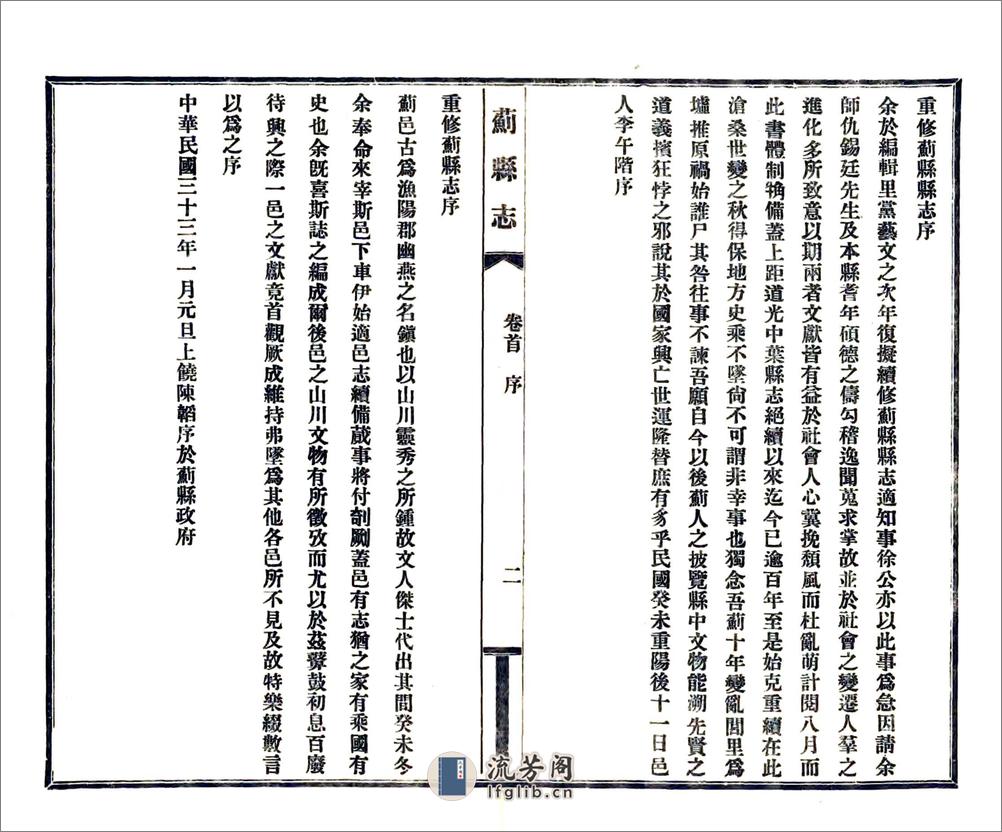 重修薊縣縣志序
余於編輯里黨藝文之次年復擬續修薊縣縣志適知事徐公亦以此事爲急因請余
師仇錫廷先生及本縣耆年碩德之儔勾稽逸聞蒐求掌故並於社會之變遷人羣之
進化多所致意以期兩者文獻皆有益於社會人心冀挽頹風而杜亂萌計閱八月而
此書體制犓備蓋上距道光中葉縣志絕續以來迄今已逾百年至是始克重續在此
滄桑世變之秋得保地方史乘不墜尙不可謂非幸事也獨念吾薊十年變亂閭里爲
墟推原禍始誰尸其咎往事不諫吾願自今以後薊人之披覽縣中文物能溯先賢之
道義擯狂悖之邪說其於國家興亡世運隆替庶有豸乎民國癸未重陽後十一日邑
人李午階序
薊縣志
卷首 序
二
重修薊縣志序
薊邑古爲漁陽郡幽燕之名鎭也以山川靈秀之所鍾故文人傑士代出其間癸未冬
余奉命來宰斯邑下車伊始適邑志續備蕆事將付剞劂蓋邑有志猶之家有乘國有
史也余旣喜斯誌之編成爾後邑之山川文物有所徵攷而尤以於茲鼙鼓初息百廢
待興之際一邑之文獻竟首觀厥成維持弗墜爲其他各邑所不見及故特樂綴數言
以爲之序
中華民國三十三年一月元旦上饒陳韜序於薊縣政府
流芳阁
lfglib.cn